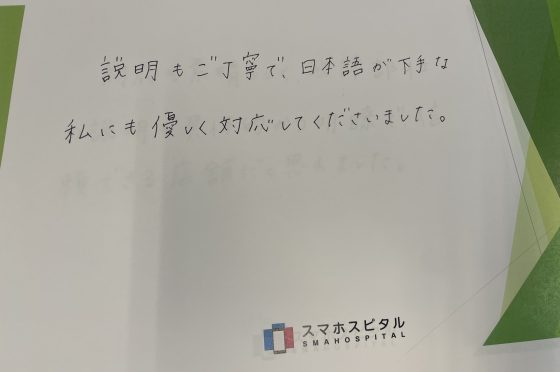 説明もご丁寧で、日本語が下手な
私にも優しく対応してくださいました。
スマホスピタル
SMAHOSPITAL